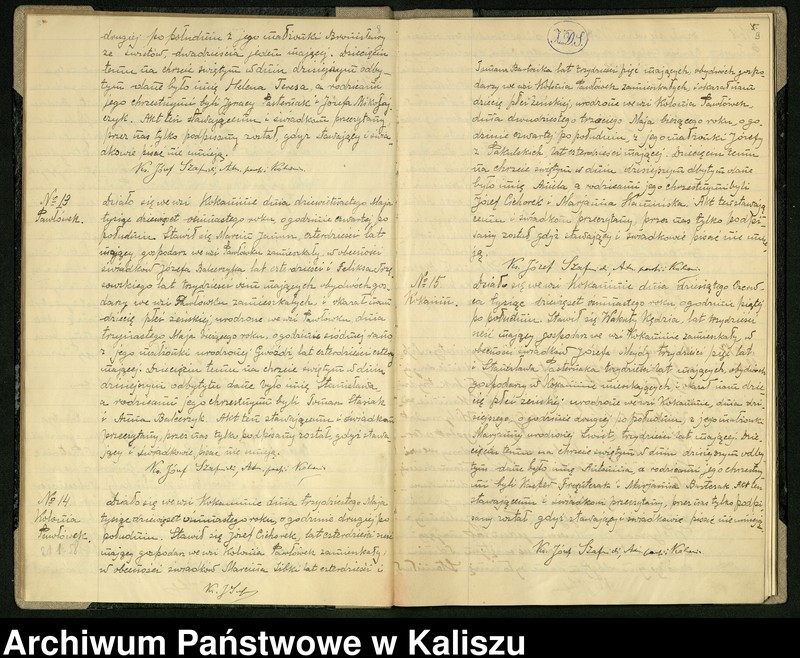 drugiej po południu z jego małżonki Bronisławy
ze Świstów, dwadzieścia jeden mającej. Dziecięciu
temu na chrzcie świętym w dniu dzisiejszym odby-
tym dano było imię Helena Teresa, a rodzicami
jego chrzestnymi byli Ignacy i Józefa
Akt ten stawającemu i świadkom przeczytany
przez nas tylko podpisany został, gdyż stawający i świa-
dkowie pisać nie umieją.
Ks. Józef
№ 13
Pawłówek.
Działo się we wsi Kokaninie dnia dziewiętnastego Maja
tysiąc dziewięćset ósmnastego roku, o godzinie czwartej po
południu. Stawił się Marcin czterdzieści lat
mający gospodarz we wsi Pawłówku zamieszkały, w obecności
świadków Józefa Balcerzyka lat czterdzieści i Feliksa
lat trzydzieści ośm mających obydwóch gos-
darzy we wsi Pawłówku zamieszkałych i okazał nam
dziecię płci żeńskiej, urodzone we wsi Pawłówku dnia
trzynastego Maja bieżącego roku, o godzinie siódmej rano
z jego małżonki urodzonej lat czterdzieści
mającej. Dziecięciu temu na chrzcie świętym w dniu
dzisiejszym odbytym dane było imię Stanisława
a rodzicami jego chrzestnymi byli Roman Stasiak
i Anna Balcerzyk. Akt ten stawającemu i świadkom
przeczytany, przez nas tylko podpisany został, gdyż stawa-
jący i świadkowie pisać nie umieją.
Ks. Józef
№ 14.
Kolonia
Pawłówek.
Działo się we wsi Kokaninie dnia trzydziestego Maja
tysiąc dziewięćset ósmnastego roku, o godzinie drugiej po
południu. Stawił się Józef Cichorek, lat czterdzieści
mający gospodarz we wsi Kolonia Pawłówek zamieszkały
w obecności świadków Marcina lat czterdzieści i
Ks. J.
X.D.S.
3
Tomasza Bartosika lat trzydzieści pięć mających, obydwóch gospo-
darzy we wsi Kolonia Pawłówek zamieszkałych, i okazał nam
dziecię płci żeńskiej, urodzone we wsi Kolonia Pawłówek,
dnia dwudziestego trzeciego Maja bieżącego roku, o go-
dzinie czwartej po południu, z jego małżonki Józefy
z lat czterdzieści mającej. Dziecięciu temu
na chrzcie świętym w dniu dzisiejszym odbytym dane
było imię Aniela, a rodzicami jego chrzestnymi byli
Józef Cichorek i Marjanna Akt ten stawają-
cemu i świadkom przeczytany, przez nas tylko podpi-
sany został, gdyż stawający i świadkowie pisać nie umie-
ją.
Ks. Józef
№ 15.
Kokanin.
Działo się we wsi Kokaninie dnia dziesiątego Czerw-
ca tysiąc dziewięćset ósmnastego roku o godzinie piątej
po południu. Stawił się Wakuty Kędzia, lat trzydzieści
mający gospodarz we wsi Kokaninie zamieszkały, w
obecności świadków Józefa trzydzieści pięć lat
i Stanisława trzydzieści lat mających obydwóch
gospodarzy w Kokaninie mieszkających i okazał nam dzie-
cię płci żeńskiej, urodzone we wsi Kokaninie, dnia dzi-
siejszego, o godzinie drugiej po południu, z jego małżonki
Marjanny urodzonej Świst, trzydzieści lat mającej. Dzie-
cięciu temu na chrzcie świętym w dniu dzisiejszym odby-
tym dane było imię a rodzicami jego chrzestny-
mi byli i Marjanna Akt ten
stawającemu i świadkom przeczytany, przez nas tylko podpi-
sany został, gdyż stawający i świadkowie pisać nie umieją.
Ks. Józef
Archiwum Państwowe w Kaliszu